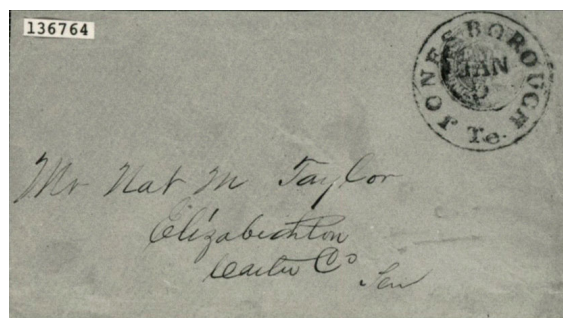 136764
JONESBOROUGH Te.
JAN
Mr Nat M Taylor
Elizabethton
Carter Co
Ten